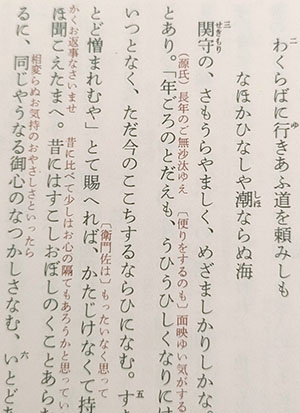 二
わくらばに行きあふ道を頼みしも
ゆ
なほかひなしや潮ならぬ海
しほ
三
関守の、さもうらやましく、めざましかりしかな
せきもり
とあり。「年ごろのとだえも、うひうひしくなりに
（源氏）長年のご無沙汰ゆえ 〔便りをするのも〕面映ゆい気がする
いつとなく、ただ今のここちするならひになむ。す
五
とど憎まれむや」とて賜へれば、かたじけなくて持
〔衛門佐は〕もったいなく思って
ほ聞こえたまへ。昔にはすこしおぼしのくことあら
かくお返事なさいませ 昔に比べて少しはお心の隔てもあろうかと思ってい
るに、同じやうなる御心のなつかしさなむ、いとど
相変らぬお気持のおやさしさといったら
六